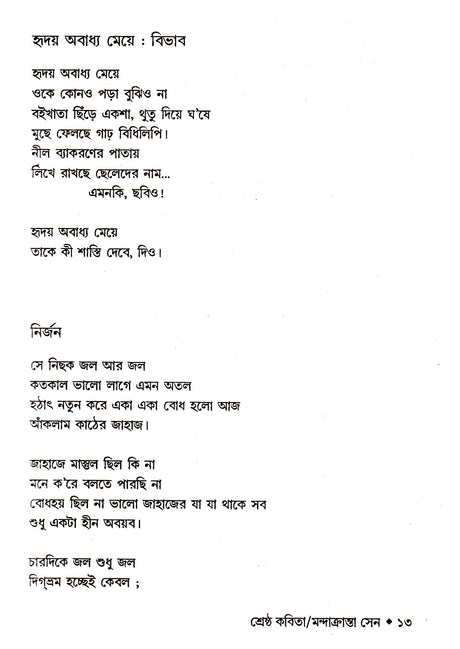 হৃদয় অবাধ্য মেয়ে : বিভাব
হৃদয় অবাধ্য মেয়ে
ওকে কোনও পড়া বুঝিও না
বইখাতা ছিঁড়ে একশা, থুতু দিয়ে ঘ'ষে
মুছে ফেলছে গাঢ় বিধিলিপি।
নীল ব্যাকরণের পাতায়
লিখে রাখছে ছেলেদের নাম...
এমনকি, ছবিও!
হৃদয় অবাধ্য মেয়ে
তাকে কী শাস্তি দেবে, দিও।
নির্জন
সে নিছক জল আর জল
কতকাল ভালো লাগে এমন অতল
হঠাৎ নতুন করে একা একা বোধ হলো আজ
আঁকলাম কাঠের জাহাজ।
জাহাজে মাস্তুল ছিল কি না
মনে ক'রে বলতে পারছি না
বোধহয় ছিল না ভালো জাহাজের যা যা থাকে সব
শুধু একটা হীন অবয়ব।
চারদিকে জল শুধু জল
দিগ্‌ভ্রম হচ্ছেই কেবল ;
শ্রেষ্ঠ কবিতা/মন্দাক্রান্তা সেন ◆ ১৩